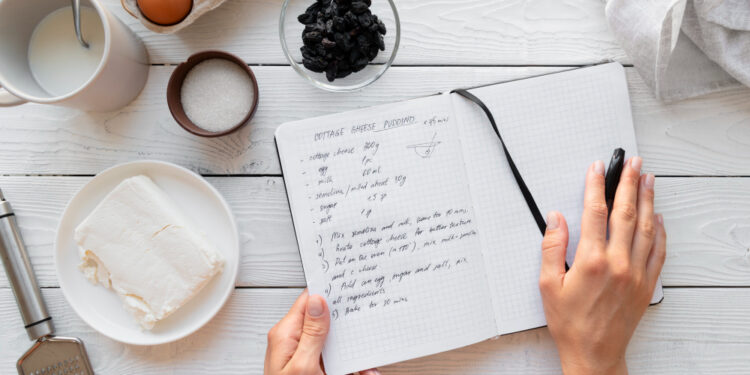 COTTAGE CHEESE PUDDING
- cottage cheese 300g
- egg 1 pc
- milk 60 ml
- semolina / milled wheat 30g
- sugar 1,5 sp
- salt 1g
1) Mix semolina and milk, some for 10 min.
2) Grate cottage cheese for better texture
3) Put on the oven mix milk-semolina
and c cheese
4) Add can egg sugar and salt, mix
all ingredients
5) Bake for 30 mins